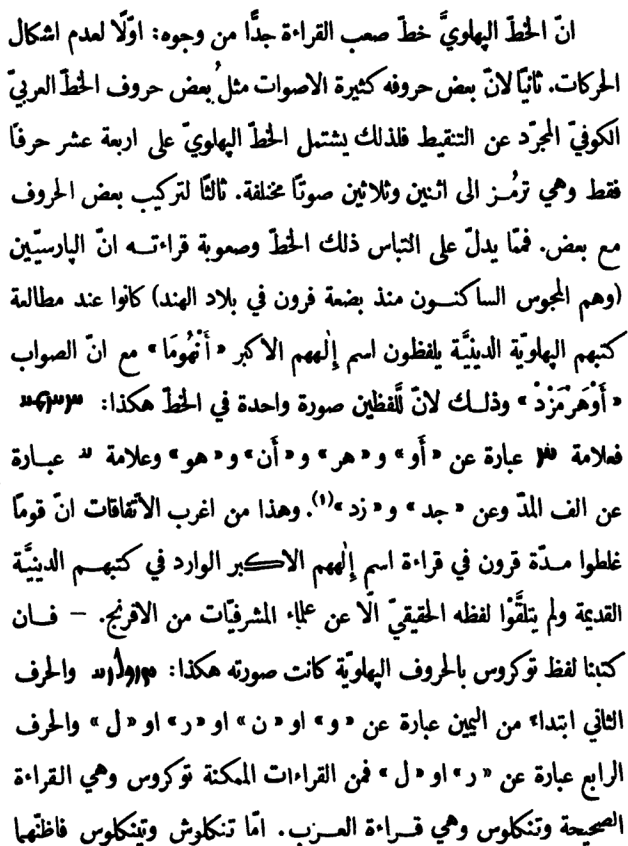 انّ الخطّ الپهلويَّ خطّ صعب القراءة جدًّا من وجوه: اوّلًا لعدم اشكال
الحركات. ثانيًا لانّ بعض حروفه كثيرة الاصوات مثل بعض حروف الخطّ العربيّ
الكوفيّ المجرّد عن التنقيط فلذلك يشتمل الخطّ الپهلويّ على اربعة عشر حرفًا
فقط وهي ترمُز الى اثنين وثلاثين صوتًا مختلفة. ثالثًا لتركيب بعض الحروف
مع بعض. فممّا يدلّ على التباس ذلك الخطّ وصعوبة قراءته انّ الپارسيّين
(وهم المجوس الساكنون منذ بضعة قرون في بلاد الهند) كانوا عند مطالعة
كتبهم الپهلويّة الدينيَّة يلفظون اسم إِلٰههم الاكبر « أَنْهُومَا » مع انّ الصواب
« أَوْهَرْمَزْدْ » وذلك لانّ للَّفظين صورة واحدة في الخطّ هكذا:
فعلامة عبارة عن « أَو » و « هر » و « أَن » و « هو » وعلامة عبارة
عن الف المدّ وعن « جد » و « زد »(١). وهذا من اغرب الاتّفاقات انّ قومًا
غلطوا مدّة قرون في قراءة اسم إِلٰههم الاكبر الوارد في كتبهم الدينيَّة
القديمة ولم يتلقَّوْا لفظه الحقيقيّ الّا عن علماء المشرقيّات من الافرنج. – فان
كتبنا لفظ توكروس بالحروف الپهلويّة كانت صورته هكذا: والحرف
الثاني ابتداءً من اليمين عبارة عن « و » او « ن » او « ر » او « ل » والحرف
الرابع عبارة عن « ر » او « ل » فمن القراءات الممكنة توكروس وهي القراءة
الصحيحة وتنكلوس وهي قراءة العرب. امّا تنكلوش وتينكلوس فاظنّهما